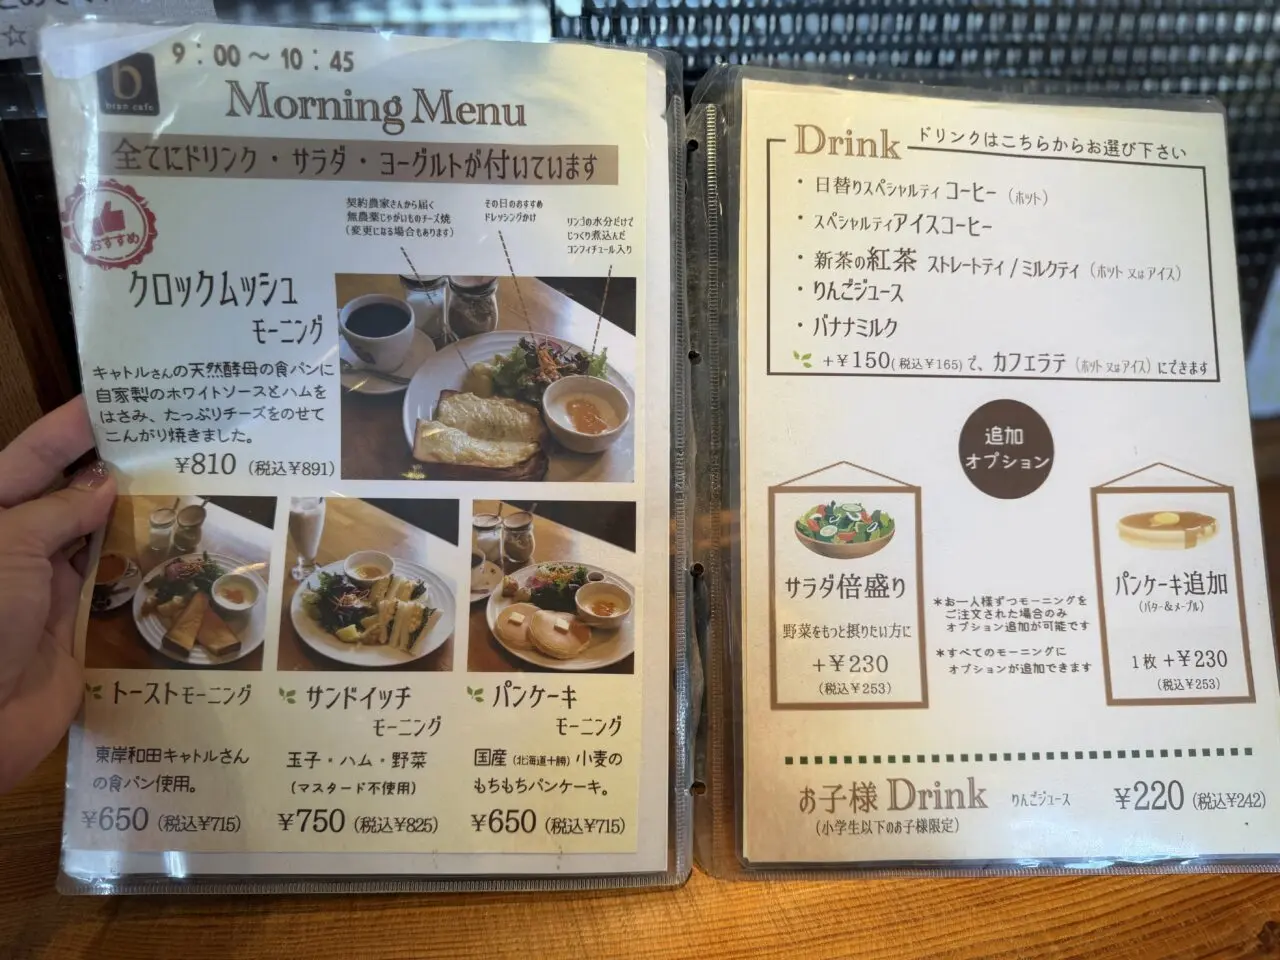 9：00～10：45
b
bran cafe
Morning Menu
全てにドリンク・サラダ・ヨーグルトが付いています
おすすめ
契約農家さんから届く
無農薬じゃがいものチーズ焼
（変更になる場合もあります）
その日のおすすめ
ドレッシングかけ
リンゴの水分だけで
じっくり煮込んだ
コンフィチュール入り
クロックムッシュ
モーニング
キャトルさんの天然酵母の食パンに
自家製のホワイトソースとハムを
はさみ、たっぷりチーズをのせて
こんがり焼きました。
¥810（税込¥891）
トーストモーニング
東岸和田キャトルさん
の食パン使用。
¥650（税込¥715）
サンドイッチ
モーニング
玉子・ハム・野菜
（マスタード不使用）
¥750（税込¥825）
パンケーキ
モーニング
国産（北海道十勝）小麦の
もちもちパンケーキ。
¥650（税込¥715）
Drink ドリンクはこちらからお選び下さい
・日替りスペシャルティ コーヒー（ホット）
・スペシャルティアイスコーヒー
・新茶の紅茶 ストレートティ/ミルクティ（ホット 又は アイス）
・りんごジュース
・バナナミルク
+¥150(税込¥165)で、カフェラテ（ホット 又は アイス）にできます
追加
オプション
サラダ倍盛り
野菜をもっと摂りたい方に
+¥230
（税込¥253）
＊お一人様ずつモーニングを
ご注文された場合のみ
オプション追加が可能です
＊すべてのモーニングに
オプションが追加できます
パンケーキ追加
（バター&メープル）
1枚+¥230
（税込¥253）
お子様 Drink りんごジュース ¥220（税込¥242）
（小学生以下のお子様限定）